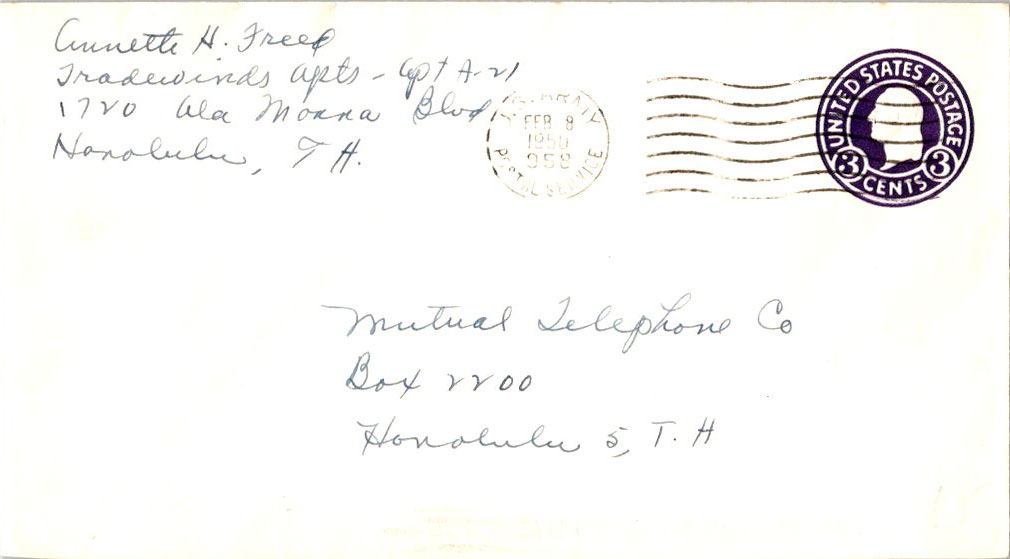 Annette H. Freed
Tradewinds Apts - Apt A-21
1720 Ala Moana Blvd
Honolulu, T H.
U.S. ARMY
FEB 8
1950
958
POSTAL SERVICE
UNITED STATES POSTAGE
3 CENTS 3
Mutual Telephone Co
Box 2200
Honolulu 5, T. H